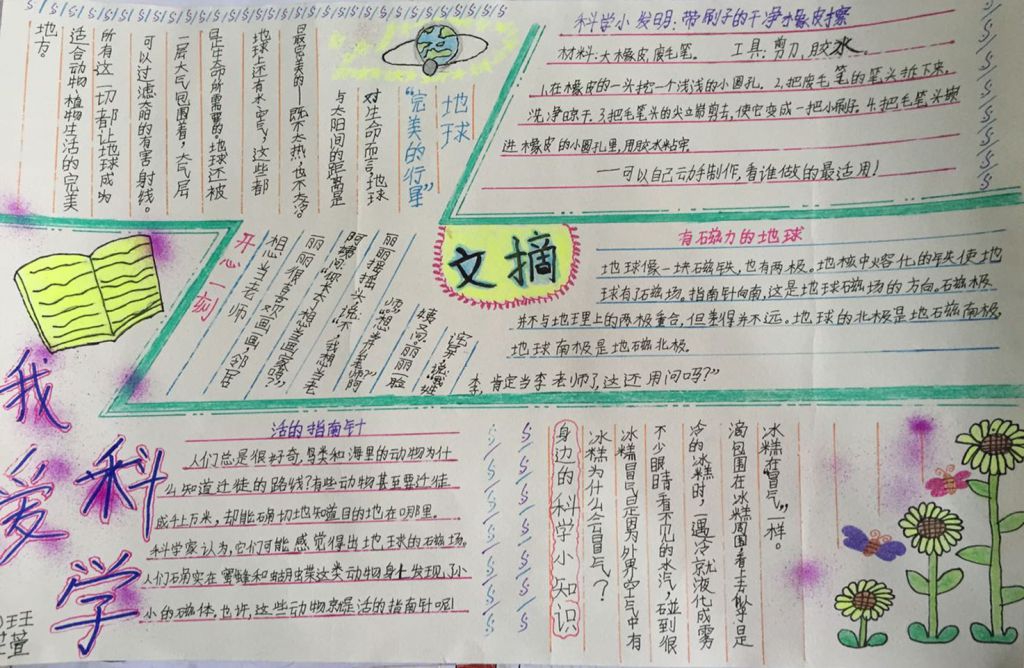 地球
“完美的行星”
对生命而言,地球
与太阳间的距离是
最完美的——既不太热,也不太冷。
地球上还有水、空气,这些都
是生命所需要的。地球还被
一层大气包围着,大气层
可以过滤太阳的有害射线。
所有这一切都让地球成为
适合动物、植物生活的完美
地方。
科学小发明:带刷子的干净橡皮擦
材料:大橡皮,废毛笔。 工具:剪刀,胶水。
1.在橡皮的一头挖一个浅浅的小圆孔。2.把废毛笔的笔头拆下来,
洗净晾干。3.把毛笔头的尖立崩剪去,使它变成一把小刷子。4.把毛笔头嵌
进橡皮的小圆孔里,用胶水粘牢。
——可以自己动手制作,看谁做的最适用!
开心一刻
想当老师
丽丽很喜欢画画,邻居
阿姨问:“你长大想当画家吗?”
丽丽摇摇头说:“不,我想当老
师。”“想当什么老师?”阿
姨又问。丽丽一脸
李,肯定当李老师了,这还用问吗?”
文摘
有磁力的地球
地球像一块磁铁,也有两极。地核中熔化的铁使地
球有了磁场。指南针向南,这是地球磁场的方向。磁极
并不与地理上的两极重合,但差得并不远。地球的北极是地磁南极,
地球南极是地磁北极。
我爱科学
活的指南针
人们总是很好奇,鸟类和海里的动物为什
么知道迁徙的路线?有些动物甚至要迁徙
成千上万米,却能确切地知道目的地在哪里。
科学家认为,它们可能感觉得出地球的磁场。
人们确实在蜜蜂和蝴蝶这类动物身上发现了小
小的磁体,也许,这些动物就是活的指南针呢!
身边的科学小知识
冰糕为什么会冒气?
冰糕冒气是因为外界空气中有
不少眼睛看不见的水汽,碰到很
冷的冰糕时,一遇冷就液化成雾
滴包围在冰糕周围看上去似乎是
冰糕在“冒气”一样。